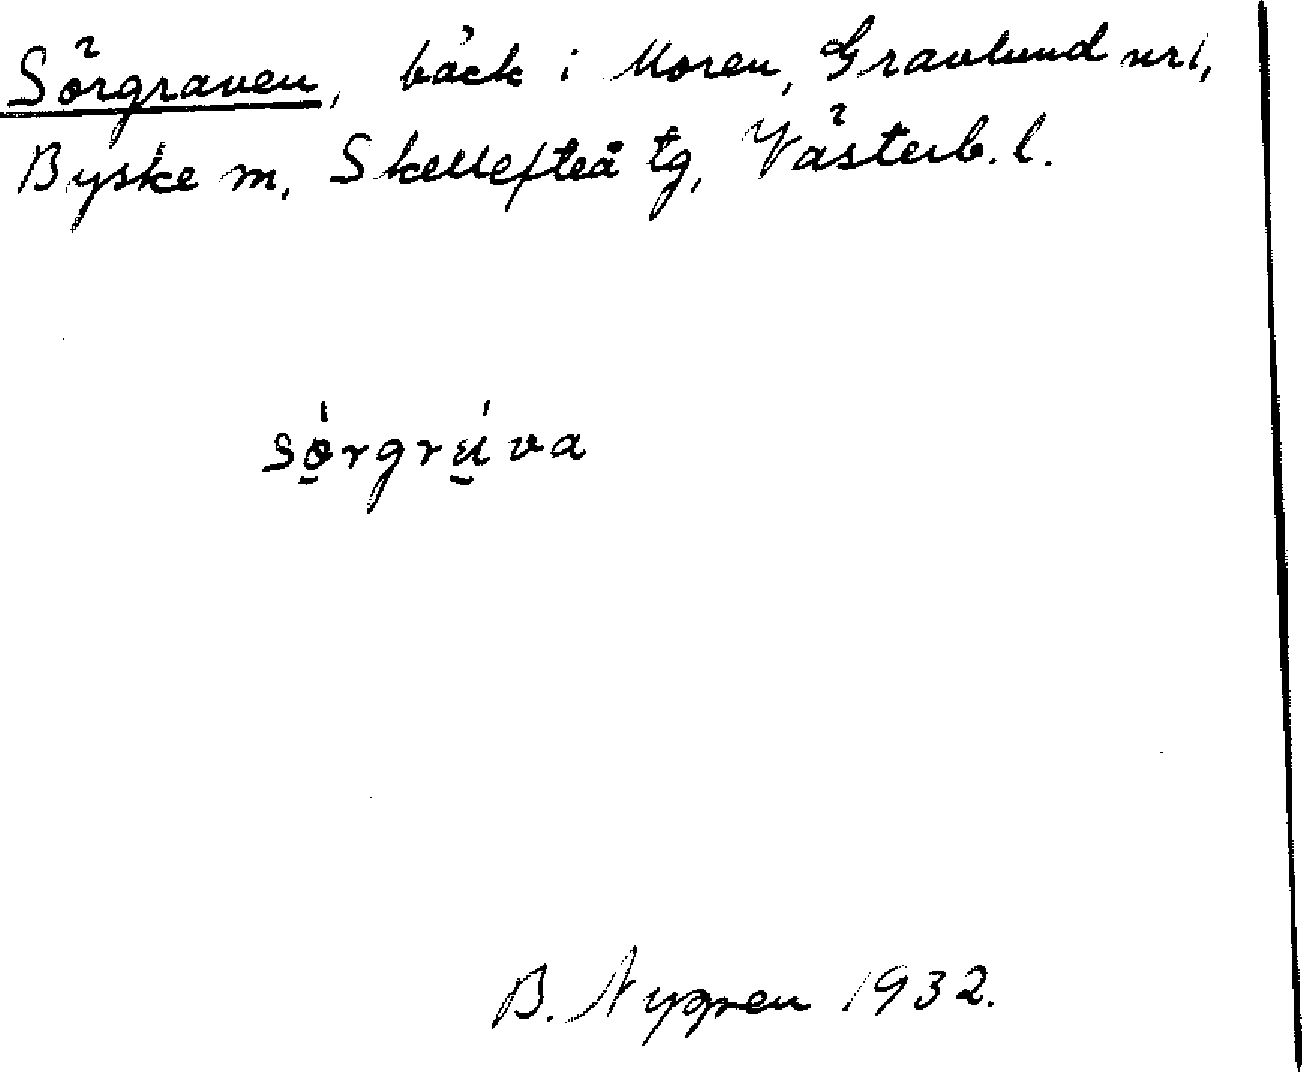 Sörgraven, bäck i Moren, Gravlund nr 1,
Byske sn, Skellefteå tg, Västerb. l.
sǿ̱rgrṵ́va
B. Nygren 1932.